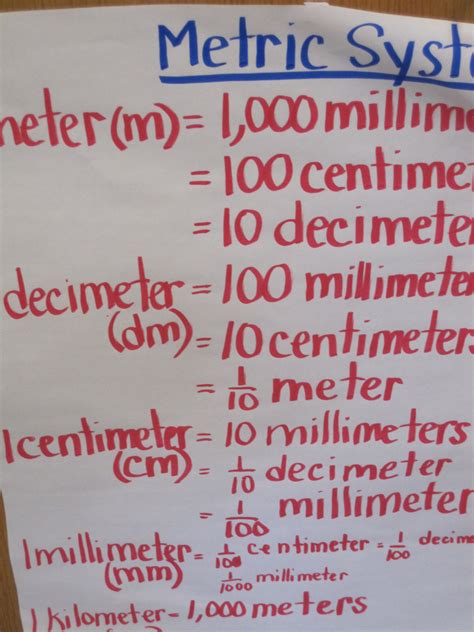 Metric Syst
meter (m) = 1,000 millime
= 100 centimet
= 10 decimeter
decimeter = 100 millimeter
(dm) = 10 centimeters
= 1/10 meter
1 centimeter = 10 millimeters
(cm) = 1/10 decimeter
= 1/100 millimeter
1 millimeter = 1/100 centimeter = 1/100 decime
(mm) 1/1000 millimeter
1 kilometer - 1,000 meters